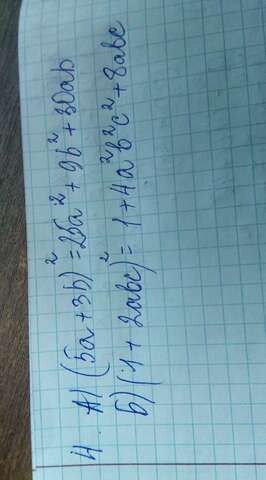 4 А) (5a+3b)²=25a²+9b²+30ab
б) (1+2abc)²=1+4a²b²c²+8abc